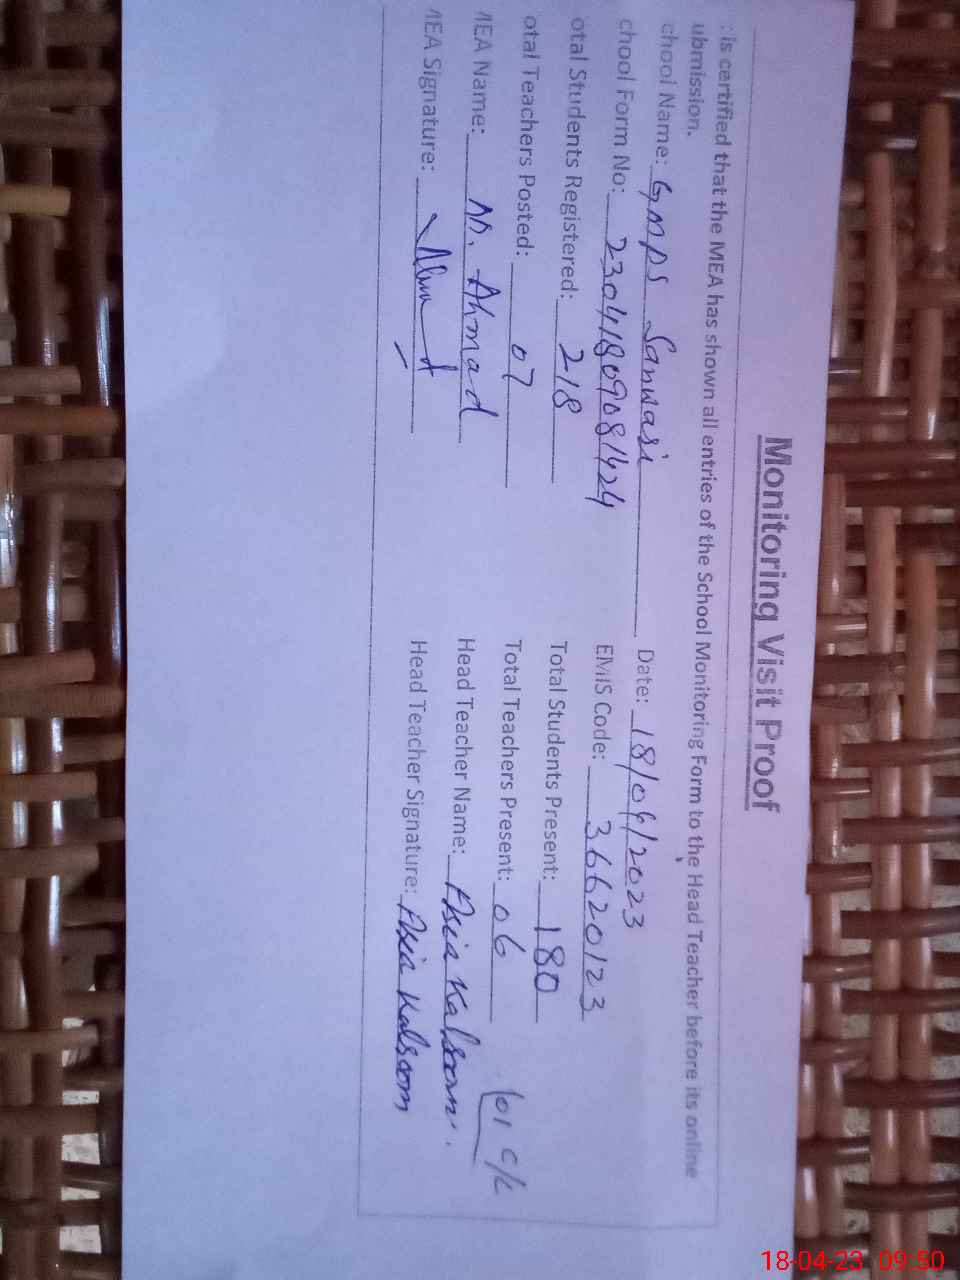 Monitoring Visit Proof
: is certified that the MEA has shown all entries of the School Monitoring Form to the Head Teacher before its online
ubmission.
chool Name: GMPS Sanwasi Date: 18/04/2023
chool Form No: 23041809081424 EMIS Code: 36620123
otal Students Registered: 218 Total Students Present: 180
otal Teachers Posted: 07 Total Teachers Present: 06 01 C/L
MEA Name: M. Ahmad Head Teacher Name: Asia Kalsoom.
MEA Signature: Head Teacher Signature: Asia Kalsoom
18-04-23 09:50